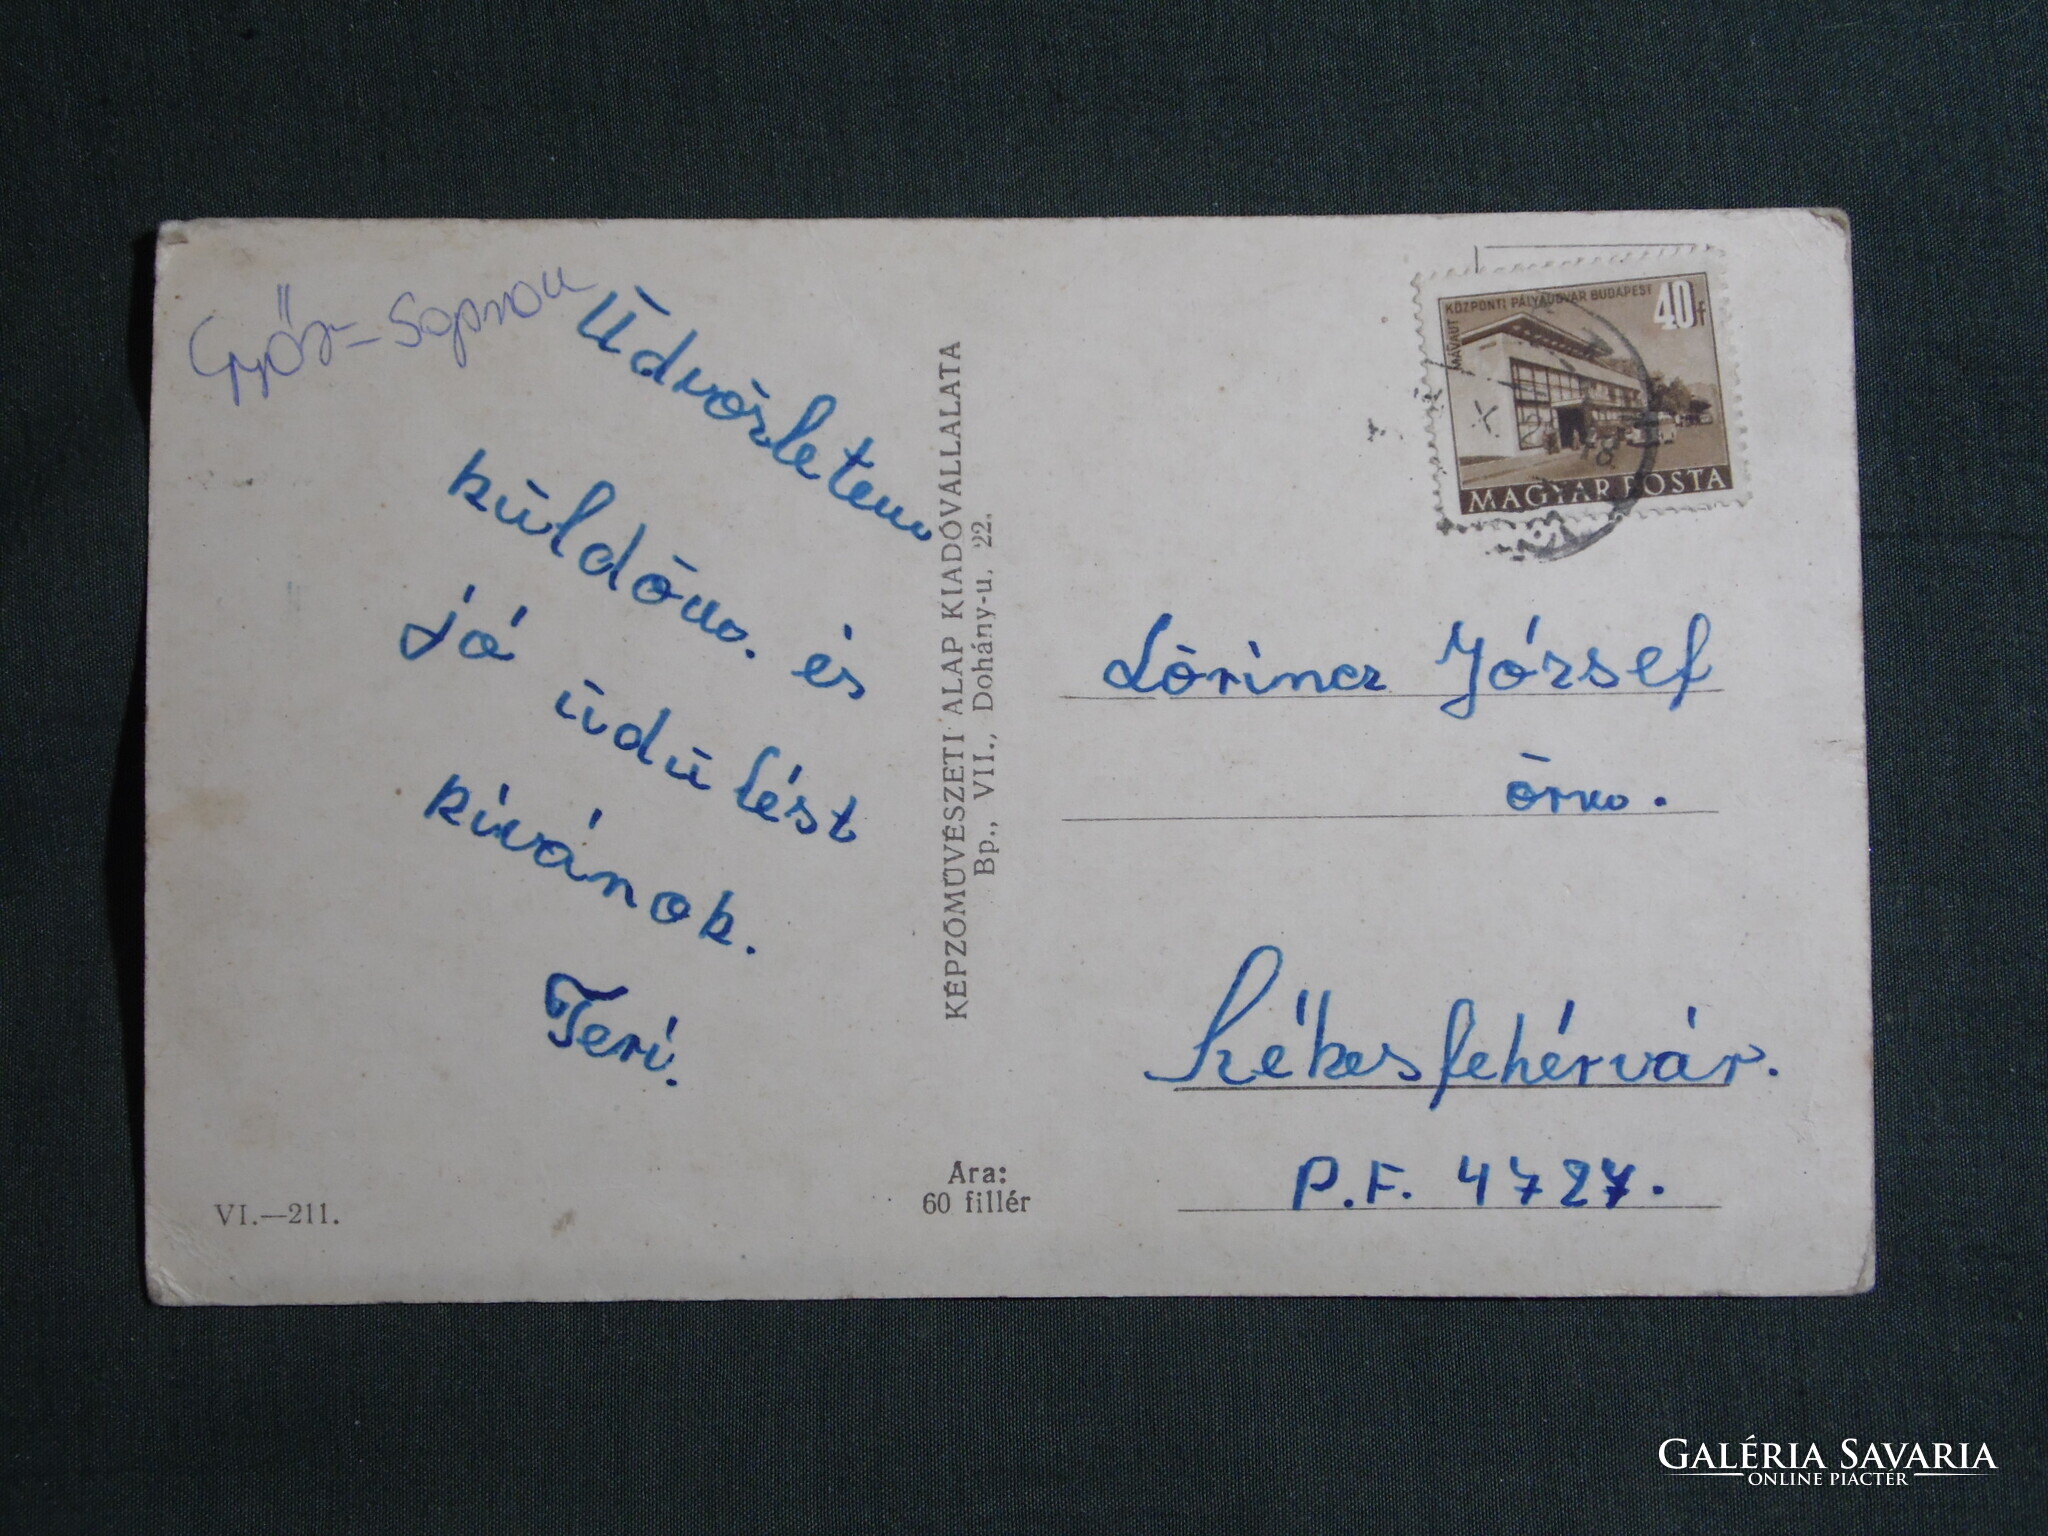 Győr-Sopron
Üdvözletem
küldöm. és
jó üdülést
kívánok.
Teri.
VI.—211.
KÉPZŐMŰVÉSZETI ALAP KIADÓVÁLLALATA
Bp., VII., Dohány-u, 22.
Ára:
60 fillér
MÁVAUT
KÖZPONTI PÁLYAUDVAR BUDAPEST
40f
MAGYAR POSTA
Lőrincz József
őrm.
Székesfehérvár.
P.F. 4727.
GALÉRIA SAVARIA
ONLINE PIACTÉR